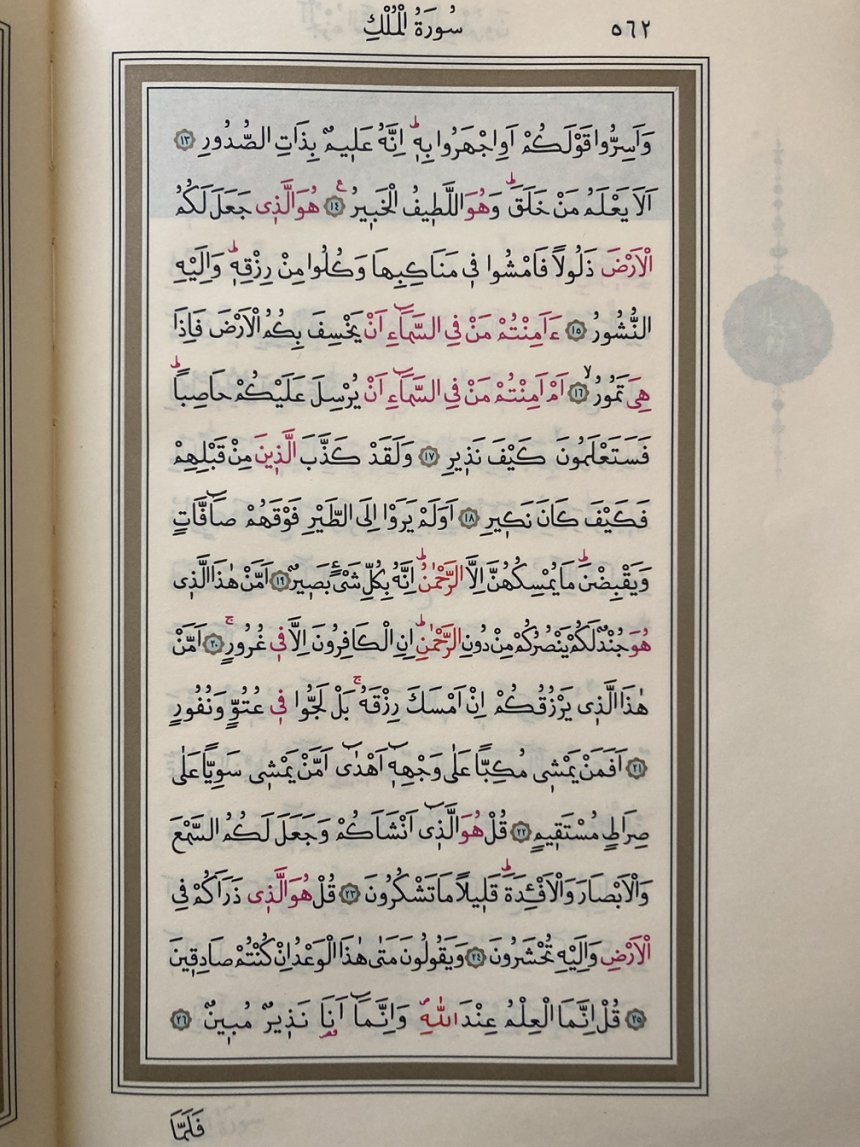 سُورَةُ الْمُلْكِ ٥٦٢
وَاَسِرُّوا قَوْلَكُمْ اَوِ اجْهَرُوا بِهِۜ اِنَّهُ عَلٖيمٌ بِذَاتِ الصُّدُورِ ١٣
اَلَا يَعْلَمُ مَنْ خَلَقَۜ وَهُوَ اللَّطٖيفُ الْخَبٖيرُ ١٤ هُوَ الَّذٖى جَعَلَ لَكُمُ
الْاَرْضَ ذَلُولاً فَامْشُوا فٖى مَنَاكِبِهَا وَكُلُوا مِنْ رِزْقِهٖۜ وَاِلَيْهِ
النُّشُورُ ١٥ ءَاَمِنْتُمْ مَنْ فِى السَّمَٓاءِ اَنْ يَخْسِفَ بِكُمُ الْاَرْضَ فَاِذَا
هِىَ تَمُورُۙ ١٦ اَمْ اَمِنْتُمْ مَنْ فِى السَّمَٓاءِ اَنْ يُرْسِلَ عَلَيْكُمْ حَاصِباًۜ
فَسَتَعْلَمُونَ كَيْفَ نَذٖيرِ ١٧ وَلَقَدْ كَذَّبَ الَّذٖينَ مِنْ قَبْلِهِمْ
فَكَيْفَ كَانَ نَكٖيرِ ١٨ اَوَلَمْ يَرَوْا اِلَى الطَّيْرِ فَوْقَهُمْ صَٓافَّاتٍ
وَيَقْبِضْنَۜ مَا يُمْسِكُهُنَّ اِلَّا الرَّحْمٰنُۜ اِنَّهُ بِكُلِّ شَیْءٍ بَصٖيرٌ ١٩ اَمَّنْ هٰذَا الَّذٖى
هُوَ جُنْدٌ لَكُمْ يَنْصُرُكُمْ مِنْ دُونِ الرَّحْمٰنِۜ اِنِ الْكَافِرُونَ اِلَّا فٖى غُرُورٍۚ ٢٠ اَمَّنْ
هٰذَا الَّذٖى يَرْزُقُكُمْ اِنْ اَمْسَكَ رِزْقَهُۚ بَلْ لَجُّوا فٖى عُتُوٍّ وَنُفُورٍ
٢١ اَفَمَنْ يَمْشٖى مُكِبّاً عَلٰى وَجْهِهٖٓ اَهْدٰٓى اَمَّنْ يَمْشٖى سَوِيّاً عَلٰى
صِرَاطٍ مُسْتَقٖيمٍ ٢٢ قُلْ هُوَ الَّذٖٓى اَنْشَاَكُمْ وَجَعَلَ لَكُمُ السَّمْعَ
وَالْاَبْصَارَ وَالْاَفْـِٔدَةَۜ قَلٖيلاً مَا تَشْكُرُونَ ٢٣ قُلْ هُوَ الَّذٖى ذَرَاَكُمْ فِى
الْاَرْضِ وَاِلَيْهِ تُحْشَرُونَ ٢٤ وَيَقُولُونَ مَتٰى هٰذَا الْوَعْدُ اِنْ كُنْتُمْ صَادِقٖينَ
٢٥ قُلْ اِنَّمَا الْعِلْمُ عِنْدَ اللّٰهِࣕ وَاِنَّمَٓا اَنَا نَذٖيرٌ مُبٖينٌ ٢٦
فَلَمَّا